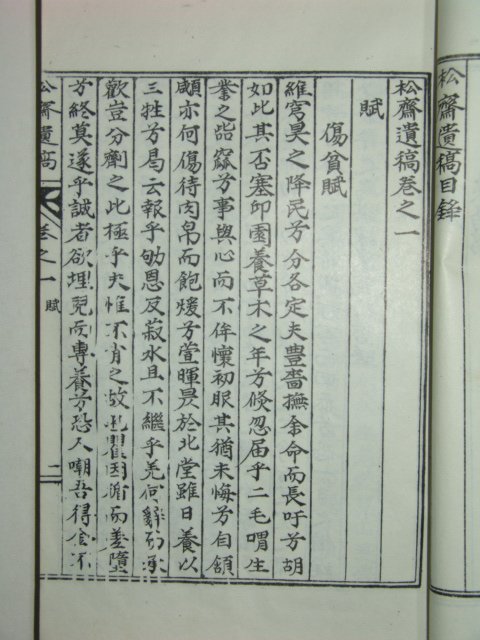 松齋遺稿目錄
松齋遺稿卷之一
賦
傷貧賦
維穹昊之降民兮分各定夫豊嗇撫余命而長吁兮胡
如此其否塞卬園養草木之年兮倏忽届乎二毛喟生
業之啙窳兮事與心而不侔懷初服其猶未悔兮自頷
顑亦何傷待肉帛而飽煖兮萱暉晟於北堂雖日養以
三牲兮曷云報乎劬恩及菽水且不繼乎羌何辭而承
歡豈分劑之此極乎夫惟不肖之故因循而
兮終莫遂乎誠者欲埋兒而專養兮恐人嘲吾得金不
松齋遺稿 卷之一 賦